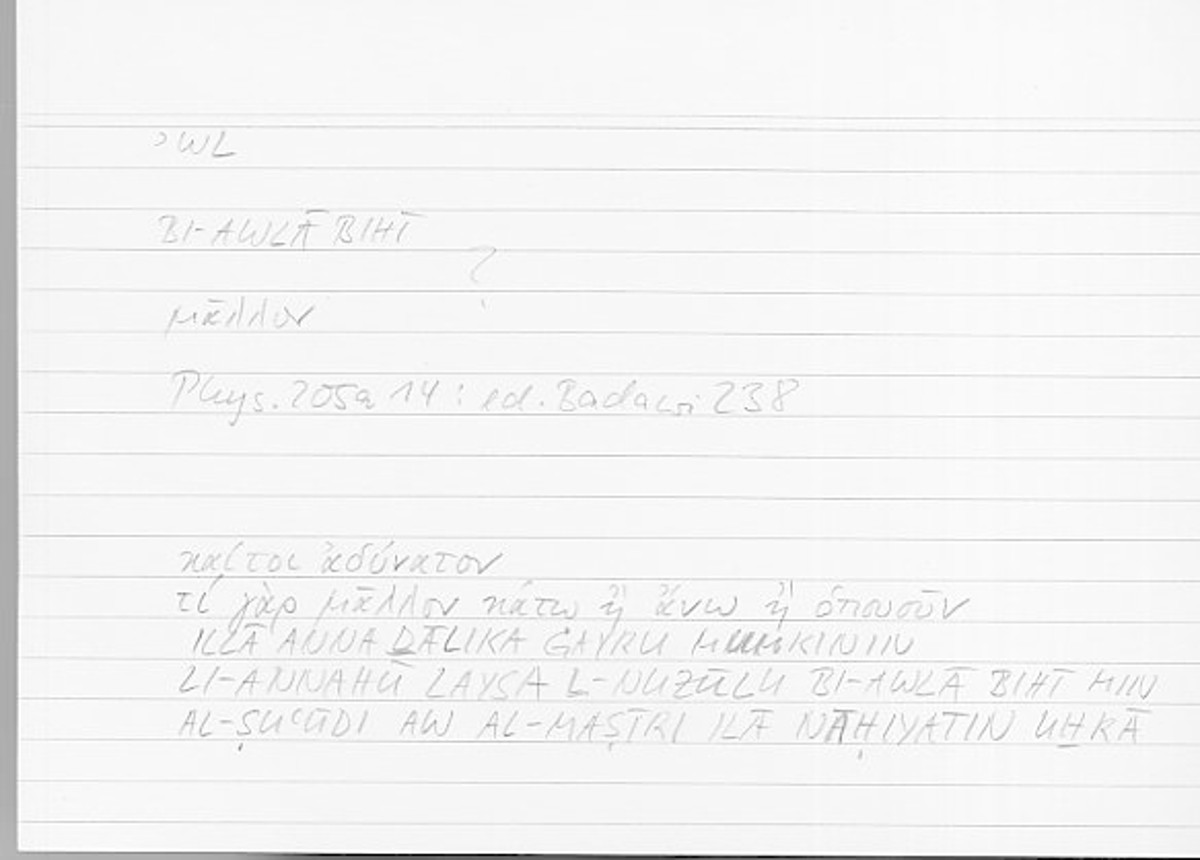 ʾWL
BI-AWLĀ BIHĪ
?
μᾶλλον
Phys. 205a 14 : ed. Badawi 238
καίτοι ἀδύνατον
τί γὰρ μᾶλλον κάτω ἢ ἄνω ἢ ὁπουοῦν
ILLĀ ANNA ḎĀLIKA GAYRU MUMKINIIN
LI-ANNAHŪ LAYSA L-NUZŪLU BI-AWLĀ BIHĪ MIN
AL-ṢUʿŪDI AW AL-MAṢĪRI ILĀ NĀḤIYATIN UḪRĀ